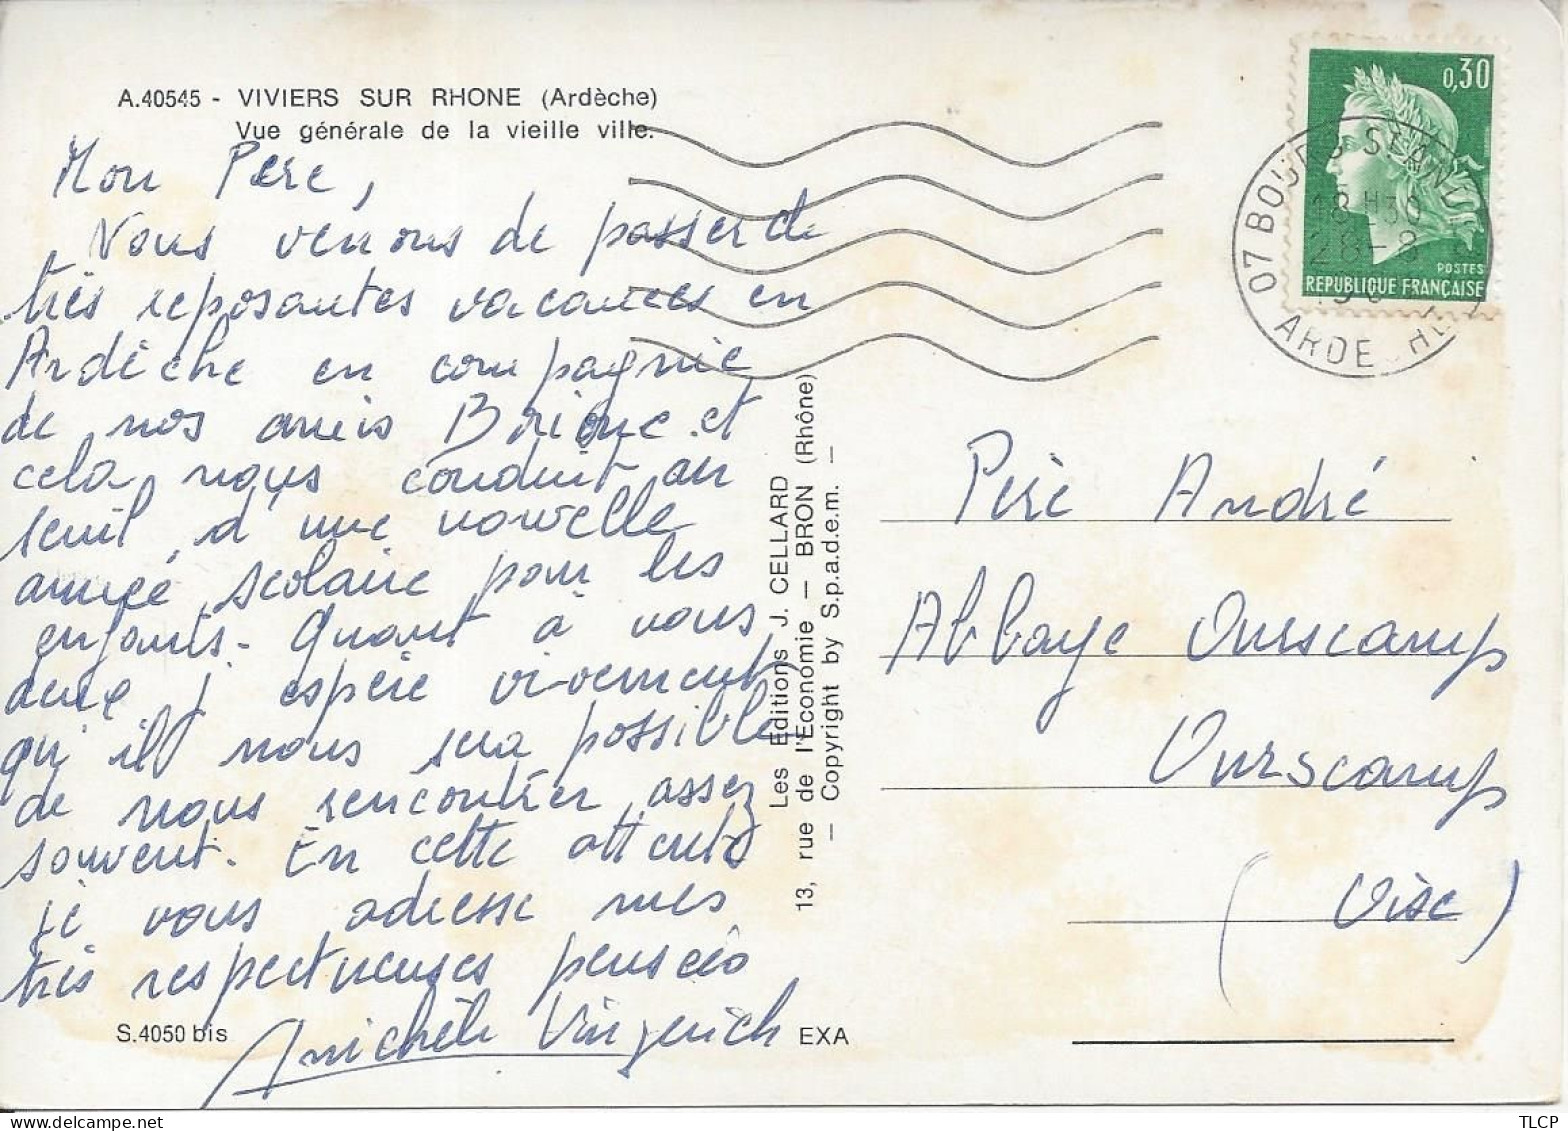 A.40545 - VIVIERS SUR RHONE (Ardèche)
Vue générale de la vieille ville.
Mon Père,
Nous venons de passer de
très reposantes vacances en
Ardèche en compagnie
de nos amis et
cela nous conduit au
seuil d'une nouvelle
année scolaire pour les
enfants. Quant à nous
deux j'espère vivement
qu'il nous sera possible
de nous rencontrer assez
souvent. En cette attente
je vous adresse mes
très respectueuses pensées
Michèle
S.4050 bis
EXA
Les Editions J. CELLARD
13, rue de l'Economie — BRON (Rhône)
— Copyright by S.p.a.d.e.m. —
0,30
POSTES
REPUBLIQUE FRANÇAISE
07 BOURG ST AND
18 H30
28-8
ARDECHE
Père André
Abbaye Ourscamp
Ourscamp
(Oise)
TLCP